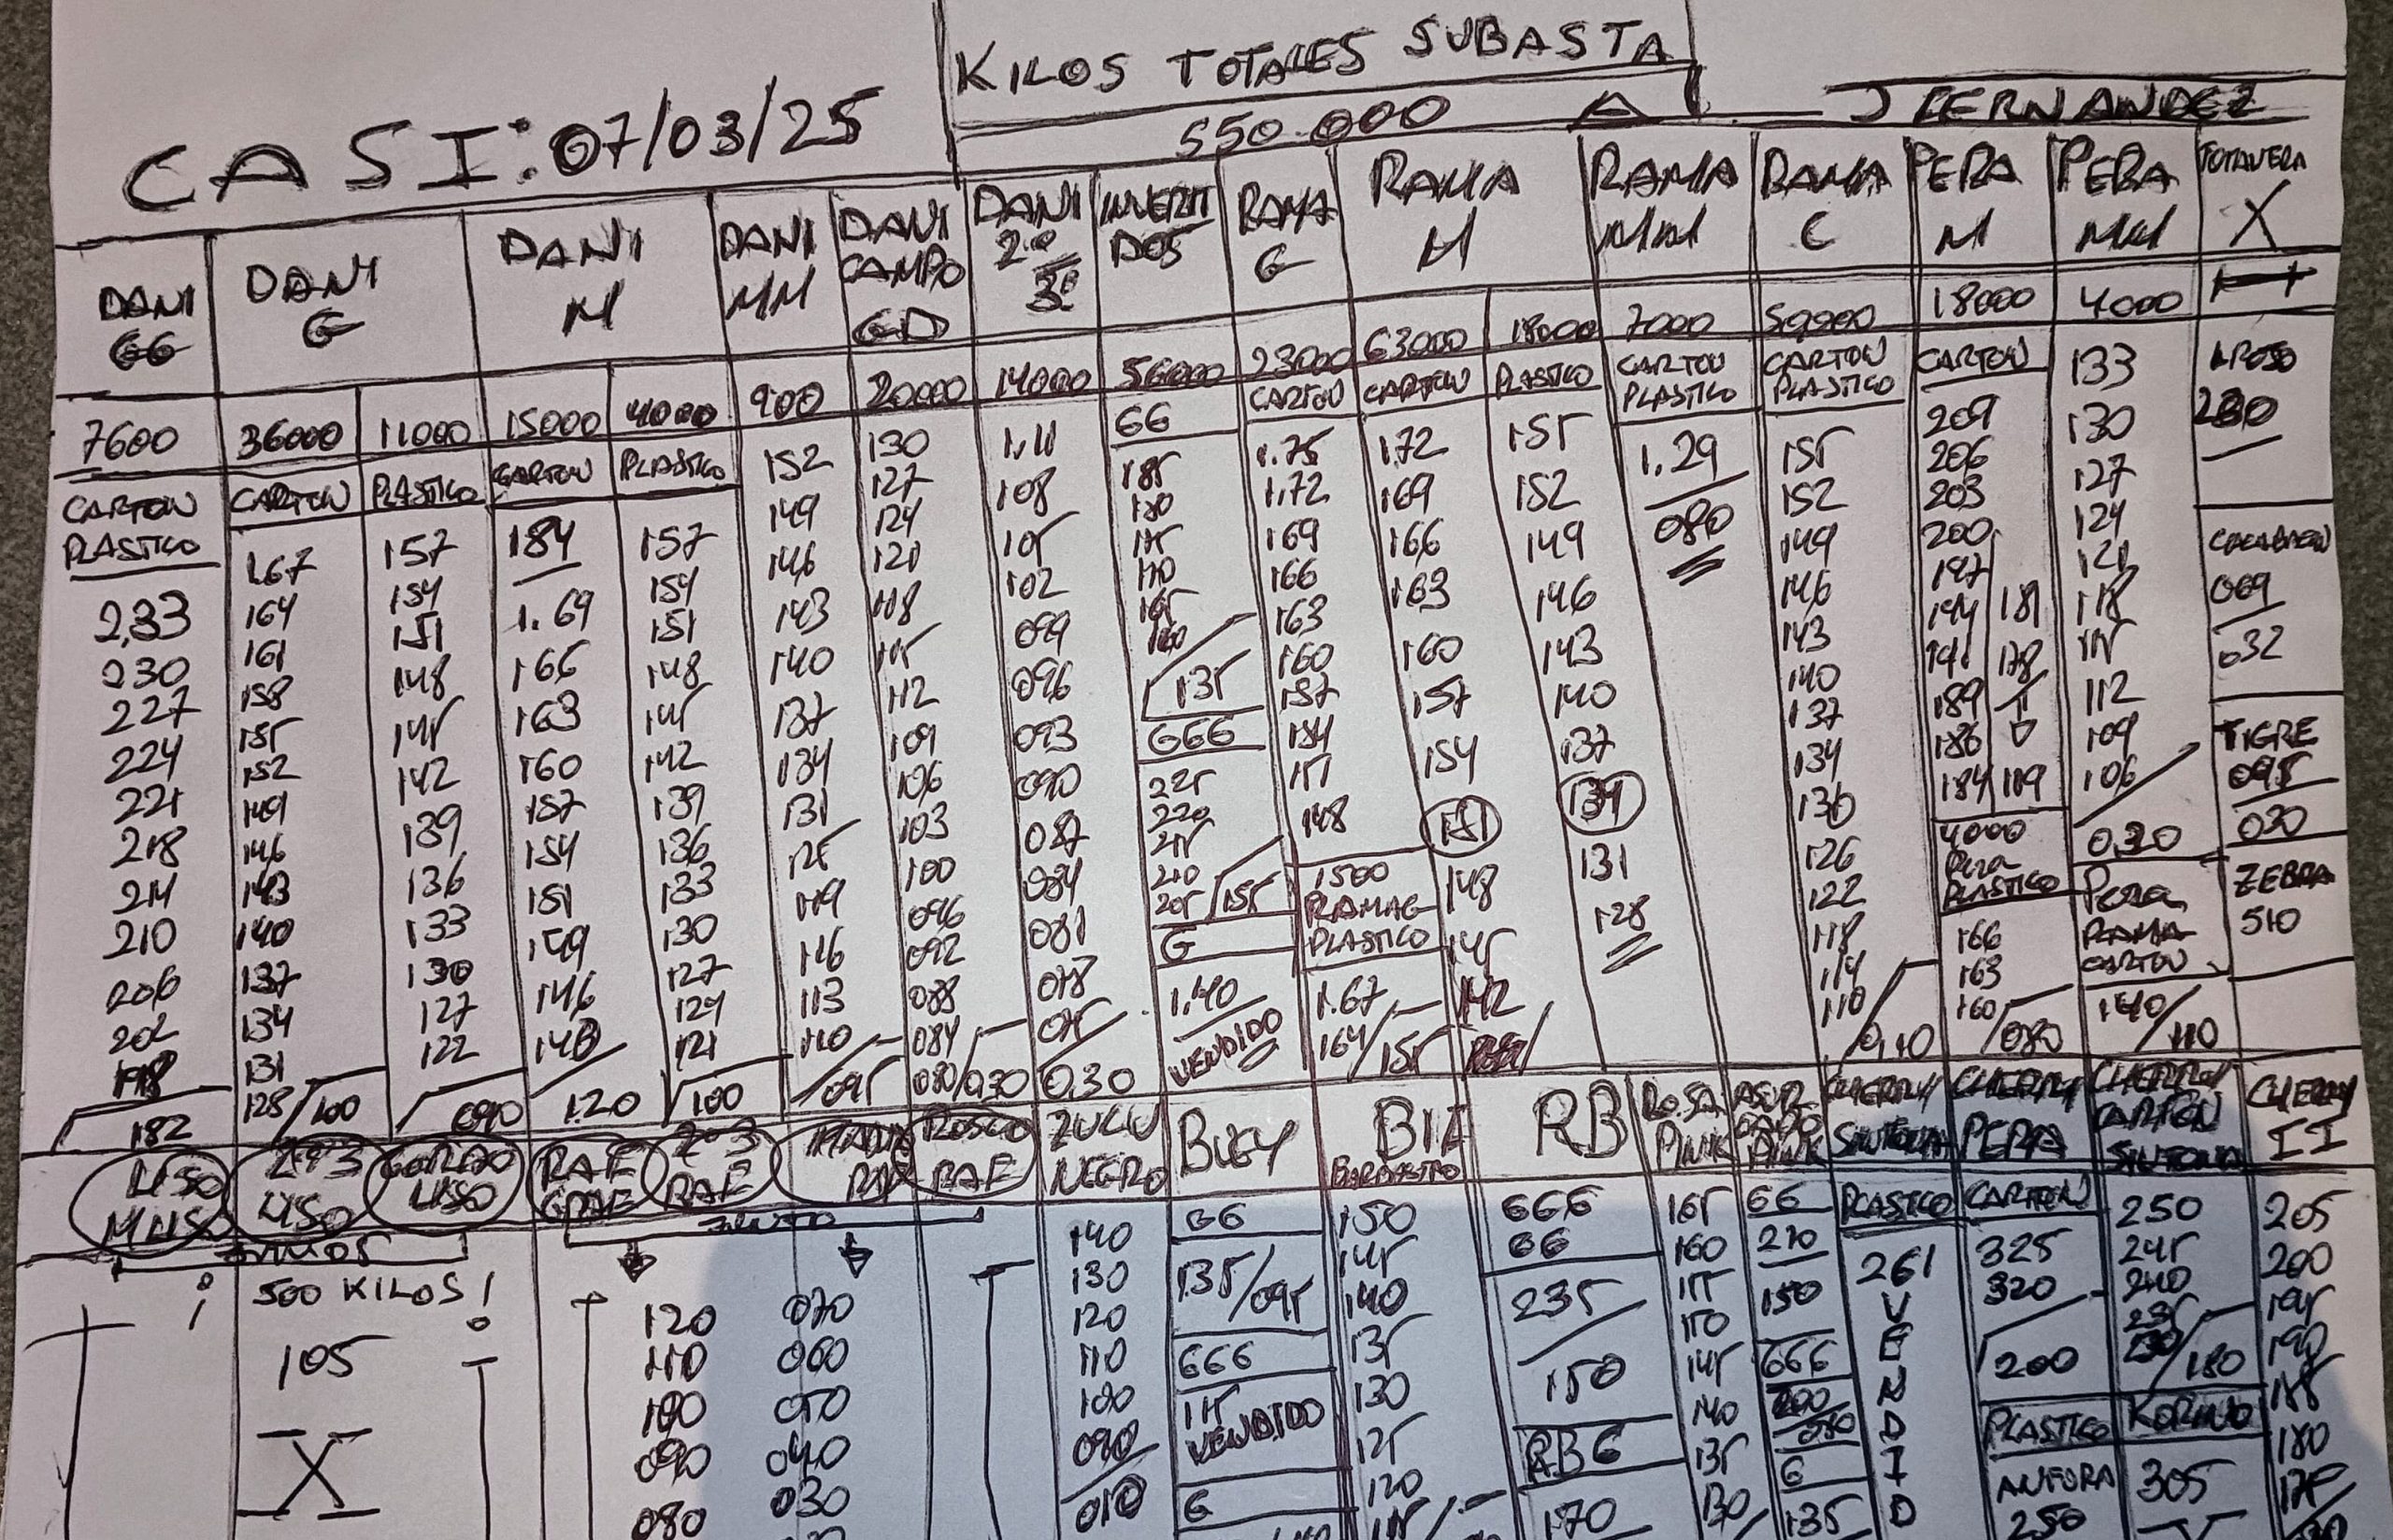 KILOS TOTALES SUBASTA
CASI: 07/03/25
550.000
DANI GG
DANI G
DANI M
DANI MM
DANI CAMPO GD
DANI 2º 3º
INVERTIDOS
RAMA G
RAMA M
RAMA MM
RAMA C
PERA M
PERA MM
X
7600 36000 11000 15000 4000 900 20000 14000 56000 23000 63000 18000 7000 18000 4000
CARTON PLASTICO
2,33
230
227
224
221
218
214
210
206
202
198
182
CARTON
1.67
164
161
158
155
152
149
146
143
140
137
134
131
128/100
PLASTICO
157
154
151
148
145
142
139
136
133
130
127
122
090
CARTON
184
1.69
166
163
160
157
154
151
149
146
143
1.20
PLASTICO
157
154
151
148
145
142
139
136
133
130
127
124
121
100
152
149
146
143
140
137
134
131
125
119
116
113
110
095
130
127
124
121
118
115
112
109
106
103
100
096
092
088
084
080/0,30
1,11
108
105
102
099
096
093
090
087
084
081
078
075
0,30
GG
185
180
175
170
165
160
135
GGG
225
220
215
210
205/155
G
1.40
VENDIDO
CARTON
1.75
1.72
169
166
163
160
157
154
151
148
1500
RAMA G
PLASTICO
1.67
164/155
CARTON
172
169
166
163
160
157
154
151
148
145
142
PLASTICO
155
152
149
146
143
140
137
134
131
128
CARTON
PLASTICO
1.29
080
CARTON
PLASTICO
155
152
149
146
143
140
137
134
130
126
122
118
114
110
0,40
CARTON
209
206
203
200
197
194 181
191 178
189
186
184 119
4000
PERA
PLASTICO
166
163
160/080
133
130
127
124
121
118
115
112
109
106
0,30
PERA
RAMA
CARTON
140/110
230
069
032
TIGRE
095
030
ZEBRA
510
LISO M LISO
2º3 LISO
GORDO LISO
RAF
2º3 RAF
ROSCO RAF
ZULU NEGRO
BIGY
BII
RB
ROSA PINK
CHERRY SINTONIA
CHERRY PERA
CHERRY CARTON SINTONIA
CHERRY II
¡500 KILOS!
105
X
120 070
110 060
100 050
090 040
080 030
140
130
120
110
100
090
010
GG
135/095
GGG
115
VENDIDO
G
150
145
140
135
130
125
120
115
GGG
GG
235
150
RB G
170
165
160
155
150
145
140
135
130
GG
210
150
GGG
200
G
135
PLASTICO
261
VENDIDO
CARTON
325
320
200
PLASTICO
ANFORA
250
250
245
240
235
230/180
305
205
200
195
190
185
180
175